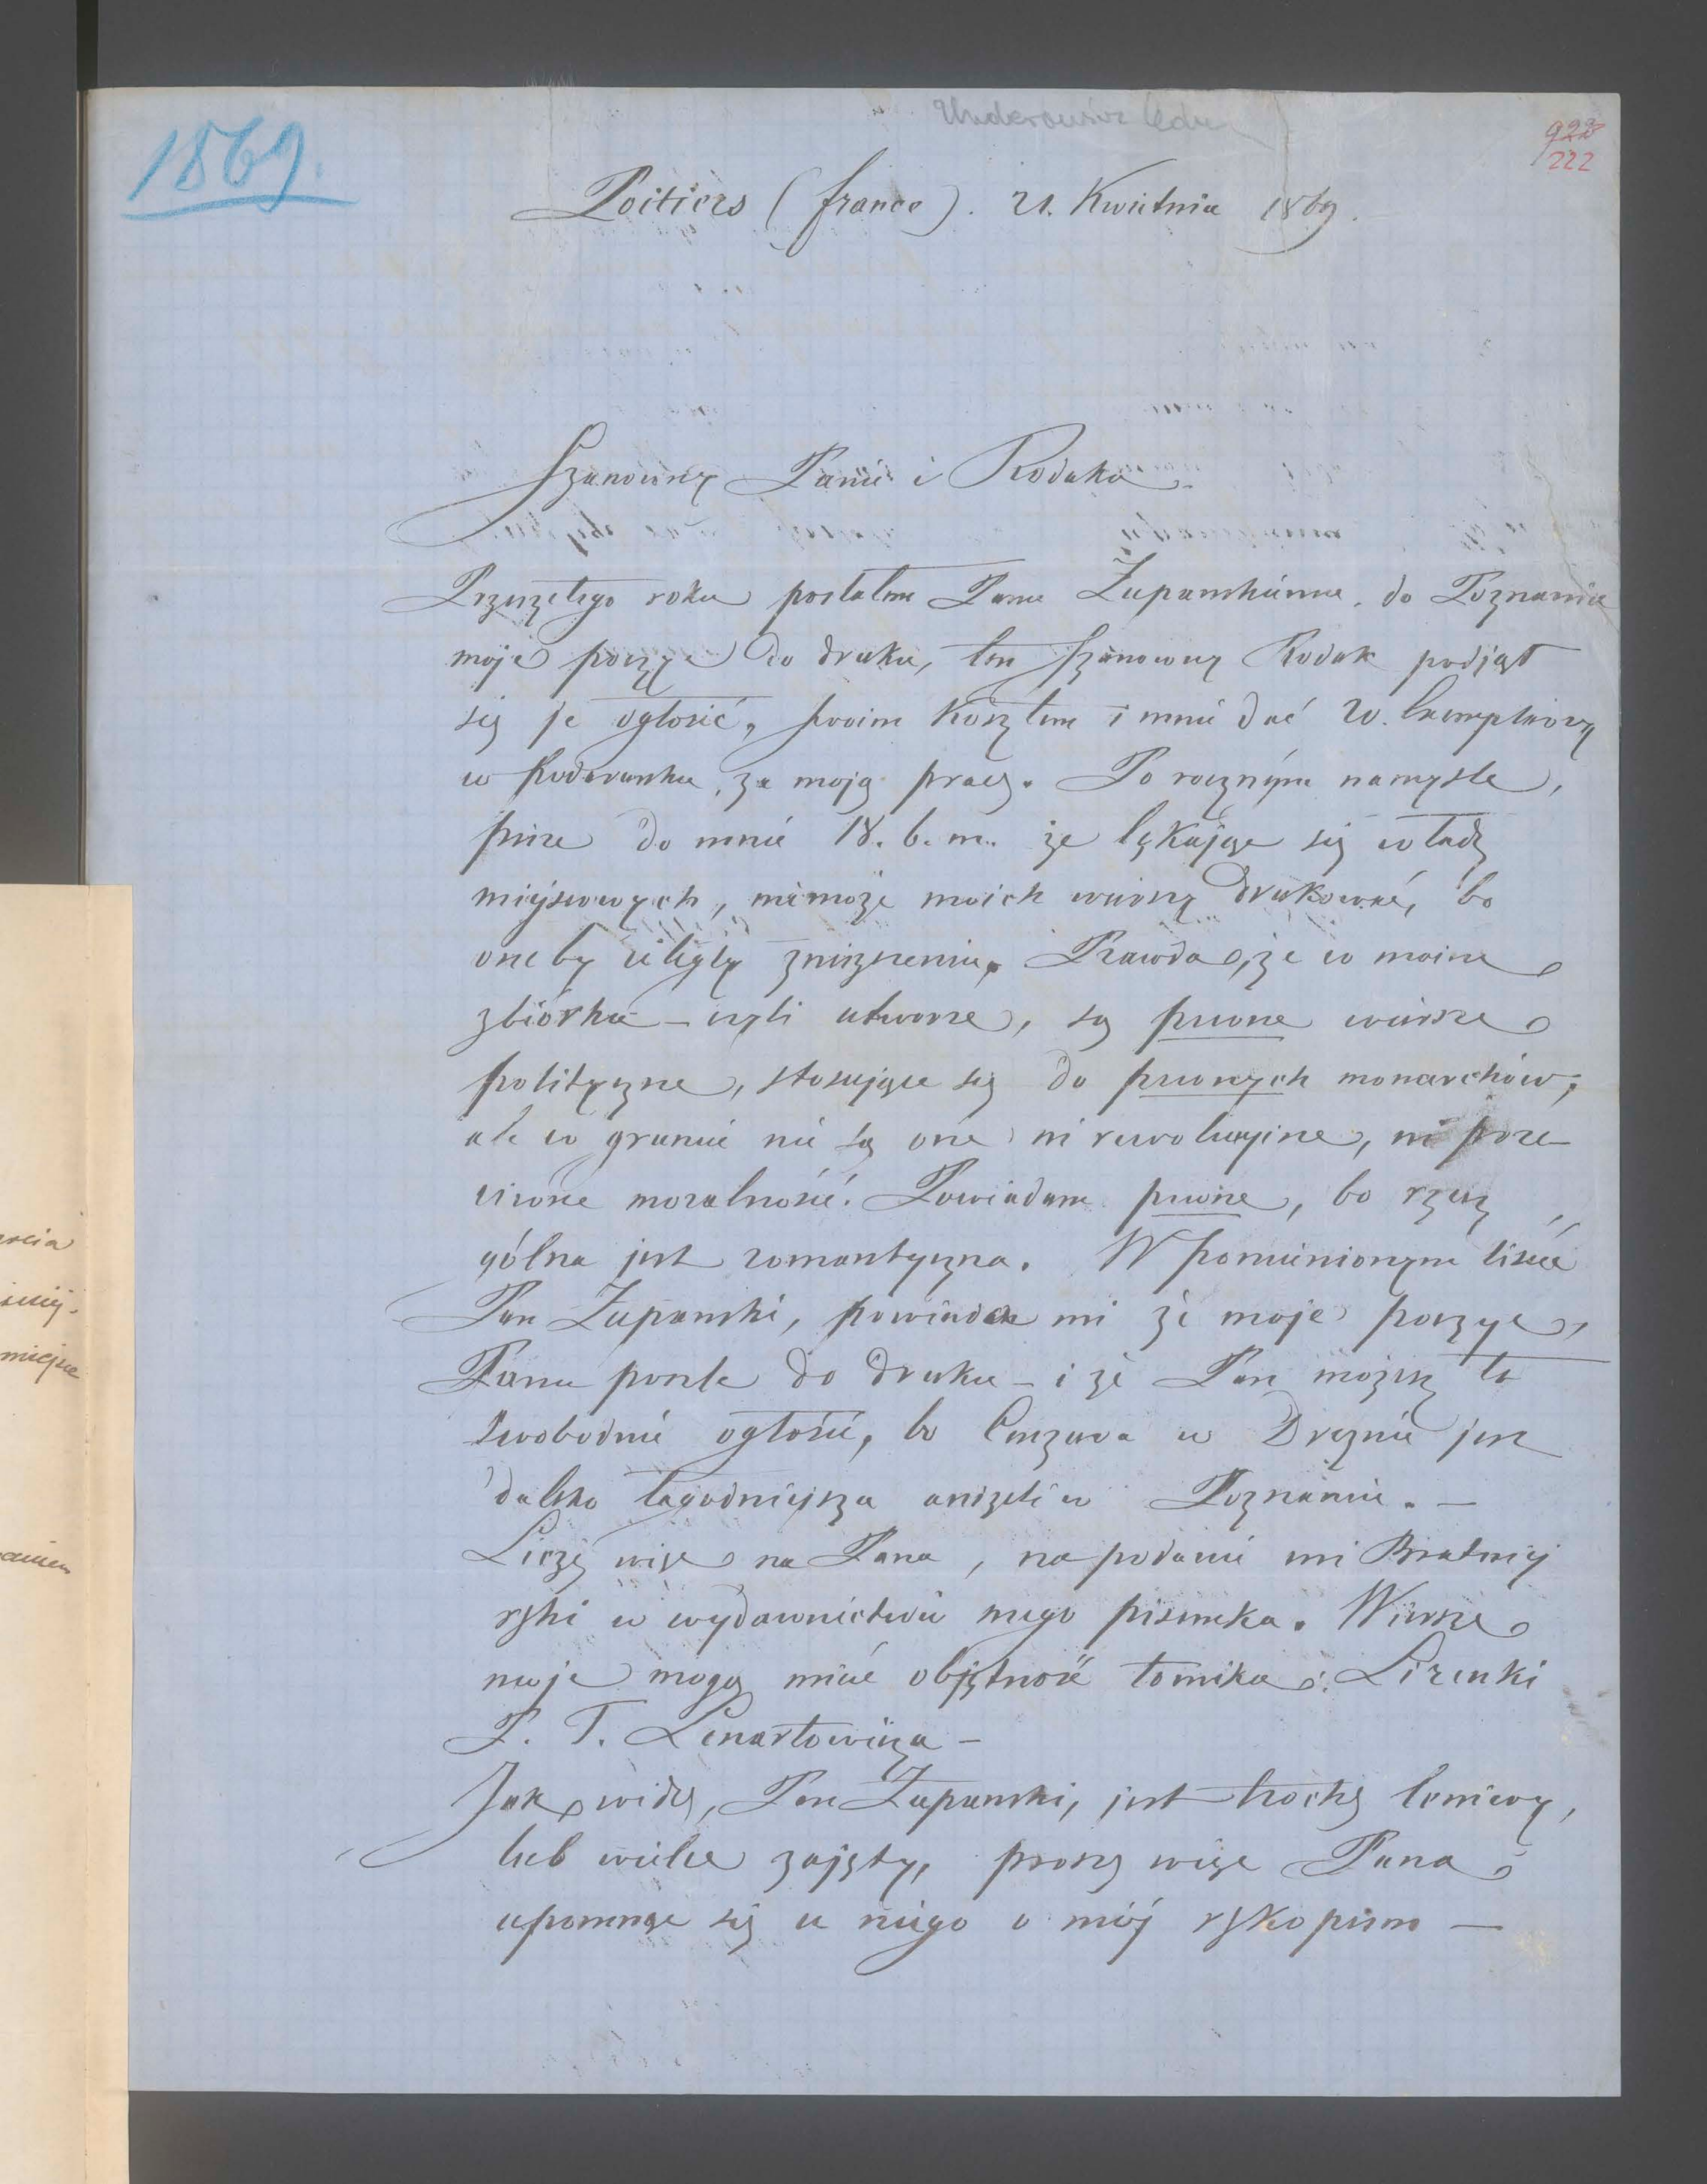 1869.
922
222
Poitiers (france). 21. Kwietnia 1869.
Szanowny Panie i Rodaku
Przeszłego roku posłałem Panu Żupańskiemu, do Poznania
moje poezye do druku, ten Szanowny Rodak podjął
się je ogłosić, swoim kosztem i mnie dać 20. Exemplarzy
w Podarunku, za moją pracę. Po rocznym namyśle,
pisze do mnie 18. b. m. że lękając się władz
miejscowych, niemoże moich wierszy drukować, bo
one by uległy zniszczeniu. Prawda, że w moim
zbiorku – czyli utworze, są pewne wiersze
polityczne, stosujące się do pewnych monarchów;
ale w gruncie nie są one ni rewolucyjne, ni prze-
ciwne moralności. Powiadam pewne, bo rzecz
gólna jest romantyczna. W pomienionym liście
Pan Żupański, powiada mi że moje poezye,
Panu poszle do druku – i że Pan możesz to
swobodnie ogłosić, bo Cenzura w Dreznie jest
daleko łagodniejsza aniżeli w Poznaniu. –
Liczę więc na Pana, na podanie mi Bratniej
ręki w wydawnictwie mego pisemka. Wiersze
moje mogą mieć objętność tomika: Lirenki
P. T. Lenartowicza –
Jak widzę, Pan Żupański, jest trochę leniwy,
lub wielce zajęty, proszę więc Pana
upomnąć się u niego o mój rękopism –